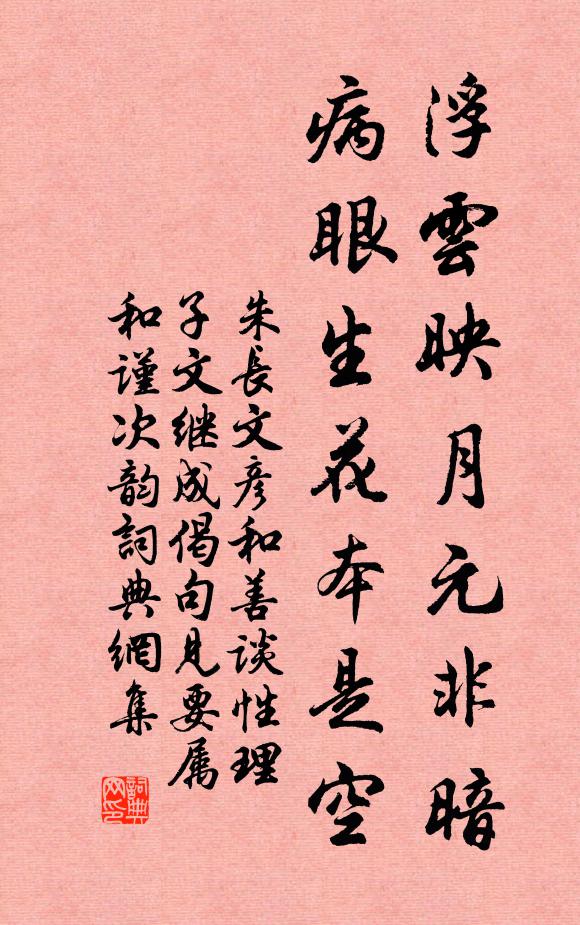 浮雲映月元非暗
病眼生花本是空
朱長文彦和善談性理
子文继成偈句見要属
和謹次韵詞典網集
詞典网印